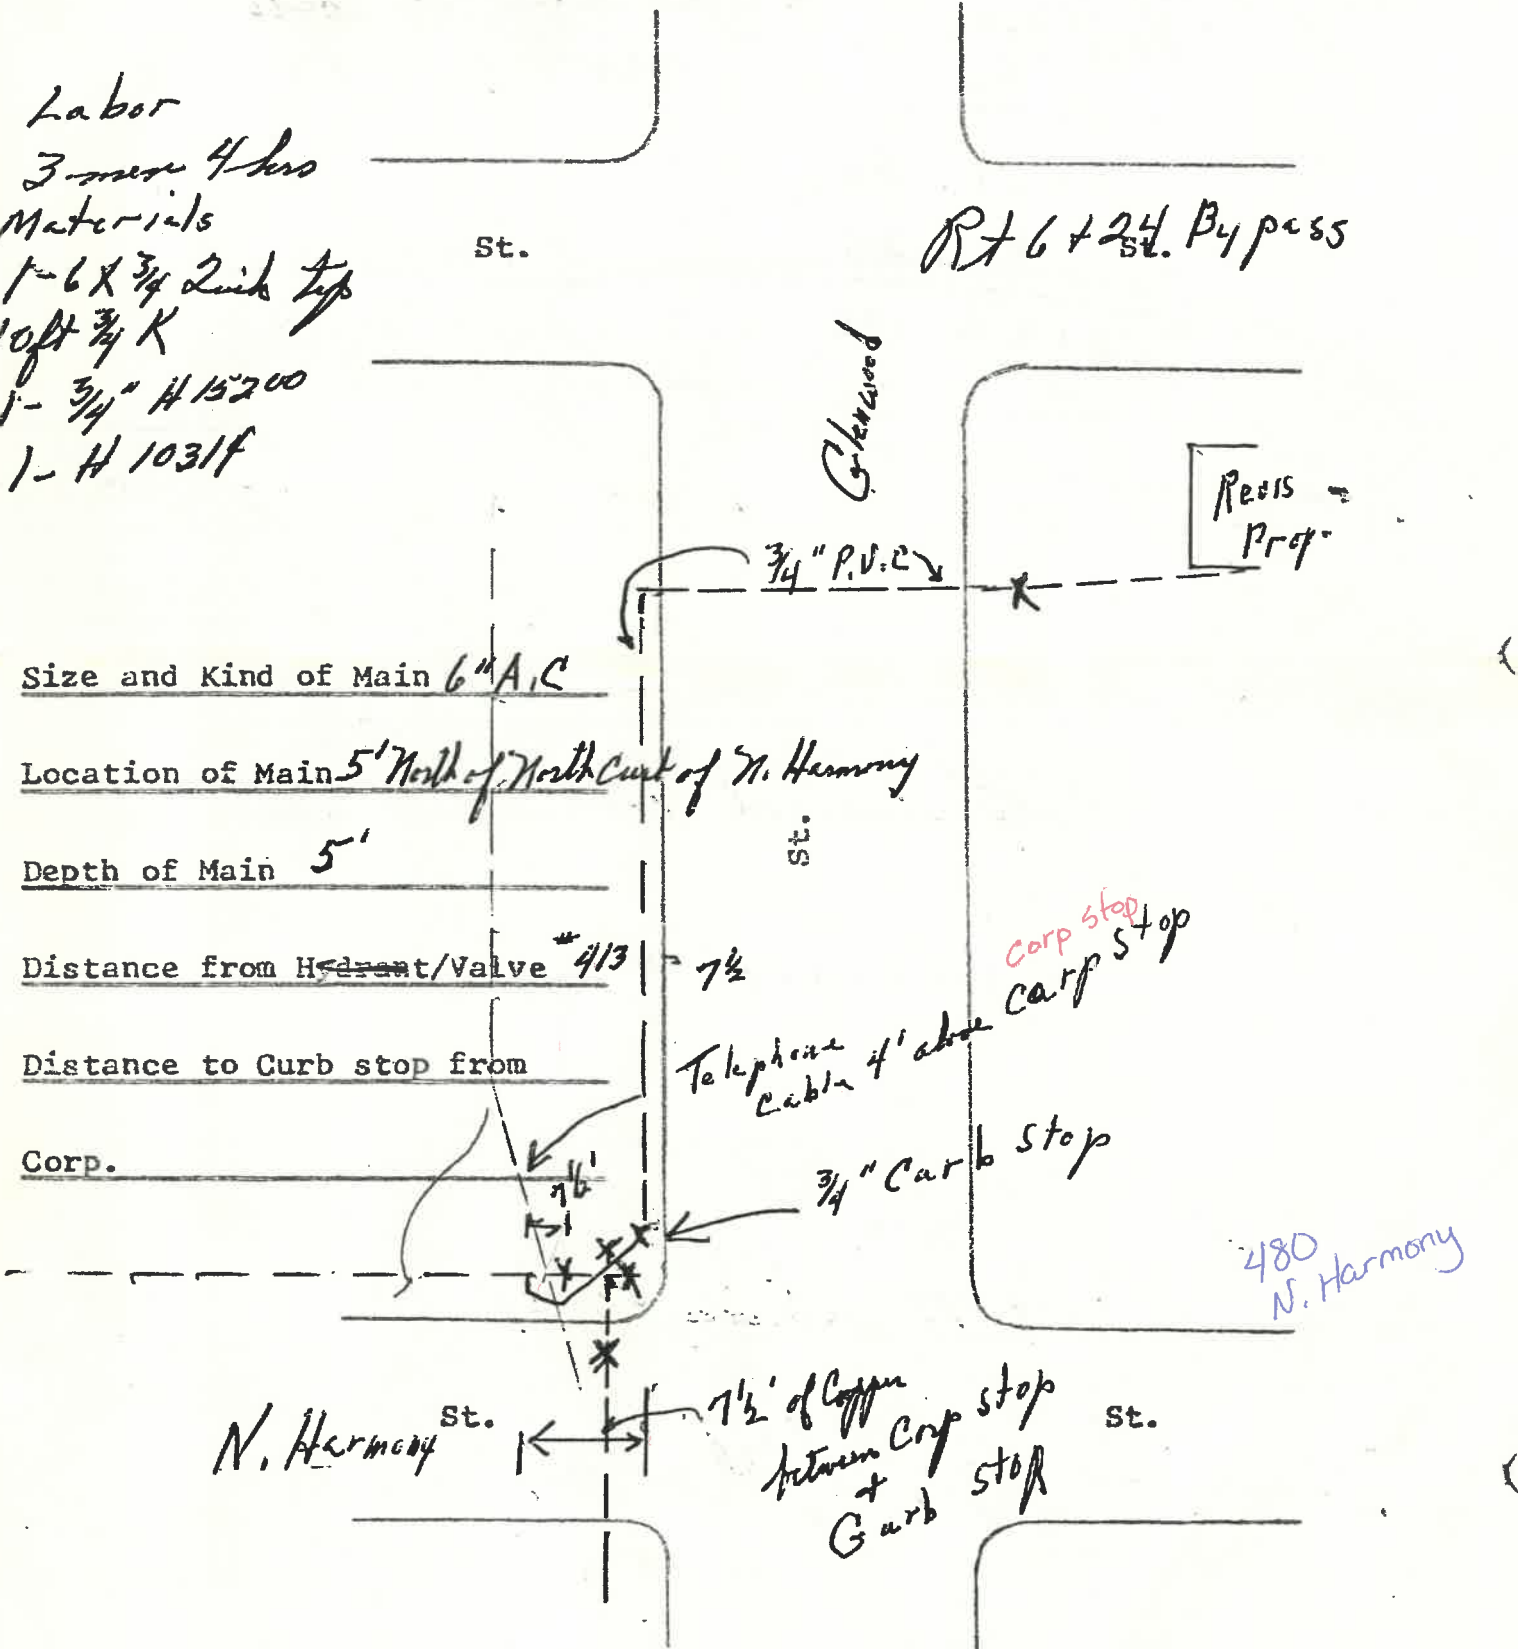 Labor
3 men 4 hrs
Materials
1-6 X 3/4 Quik tap
10ft 3/4 K
1- 3/4" H 15200
1- H 10314
St.
Rt 6 + 24 By pass
St.
Glenwood
3/4" P.V.C
Prop.
Size and Kind of Main 6" A.C
Location of Main 5' North of North Curb of N. Harmony
Depth of Main 5'
St.
Distance from Hydrant/Valve #413
7 1/2
corp stop
corp stop
Distance to Curb stop from
Telephone
cable 4' above
Corp.
7 1/2'
3/4" Curb stop
480
N. Harmony
N. Harmony St.
7 1/2' of Copper
between Corp stop
+
Curb stop
St.